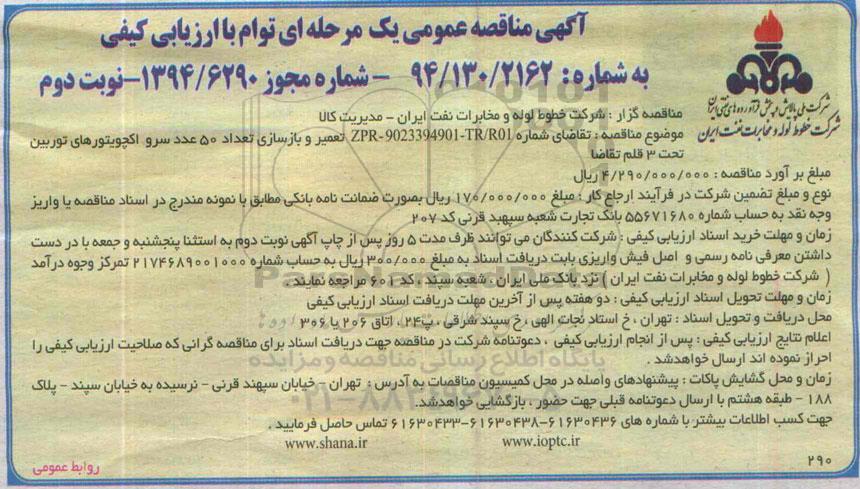 آگهی مناقصه عمومی یک مرحله ای توام با ارزیابی کیفی
به شماره: ۹۴/۱۳۰/۲۱۶۲ - شماره مجوز ۱۳۹۴/۶۲۹۰-نوبت دوم
شرکت ملی پالایش و پخش فرآورده های نفتی ایران
شرکت خطوط لوله و مخابرات نفت ایران
مناقصه گزار : شرکت خطوط لوله و مخابرات نفت ایران - مدیریت کالا
موضوع مناقصه : تقاضای شماره ZPR- 9023394901-TR/R01 تعمیر و بازسازی تعداد ۵۰ عدد سرو اکچویتورهای توربین
تحت ۳ قلم تقاضا
مبلغ بر آورد مناقصه : ۴/۲۹۰/۰۰۰/۰۰۰ ریال
نوع و مبلغ تضمین شرکت در فرآیند ارجاع کار : مبلغ ۱۷۰/۰۰۰/۰۰۰ ریال بصورت ضمانت نامه بانکی مطابق با نمونه مندرج در اسناد مناقصه یا واریز
وجه نقد به حساب شماره ۵۵۶۷۱۶۸۰ بانک تجارت شعبه سپهبد قرنی کد ۲۰۷
زمان و مهلت خرید اسناد ارزیابی کیفی : شرکت کنندگان می توانند ظرف مدت ۵ روز پس از چاپ آگهی نوبت دوم به استثنا پنجشنبه و جمعه با در دست
داشتن معرفی نامه رسمی و اصل فیش واریزی بابت دریافت اسناد به مبلغ ۳۰۰/۰۰۰ ریال به حساب شماره ۲۱۷۴۶۸۹۰۰۱۰۰۰ تمرکز وجوه درآمد
( شرکت خطوط لوله و مخابرات نفت ایران ) نزد بانک ملی ایران ، شعبه سپند ، کد ۶۰۱ مراجعه نمایند .
زمان و مهلت تحویل اسناد ارزیابی کیفی : دو هفته پس از آخرین مهلت دریافت اسناد ارزیابی کیفی
محل دریافت و تحویل اسناد : تهران ، خ استاد نجات الهی ، خ سپند شرقی ، پ۲۴ ، اتاق ۲۰۶ یا ۳۰۶
اعلام نتایج ارزیابی کیفی : پس از انجام ارزیابی کیفی ، دعوتنامه شرکت در مناقصه جهت دریافت اسناد برای مناقصه گرانی که صلاحیت ارزیابی کیفی را
احراز نموده اند ارسال خواهدشد .
زمان و محل گشایش پاکات : پیشنهادهای واصله در محل کمیسیون مناقصات به آدرس : تهران - خیابان سپهند قرنی - نرسیده به خیابان سپند - پلاک
۱۸۸ - طبقه هشتم با ارسال دعوتنامه قبلی جهت حضور ، بازگشایی خواهدشد.
جهت کسب اطلاعات بیشتر با شماره های ۶۱۶۳۰۴۳۶-۶۱۶۳۰۴۳۸-۶۱۶۳۰۴۳۳ تماس حاصل فرمایید .
www.ioptc.ir www.shana.ir
۲۹۰
روابط عمومی
پایگاه اطلاع رسانی مناقصه و مزایده